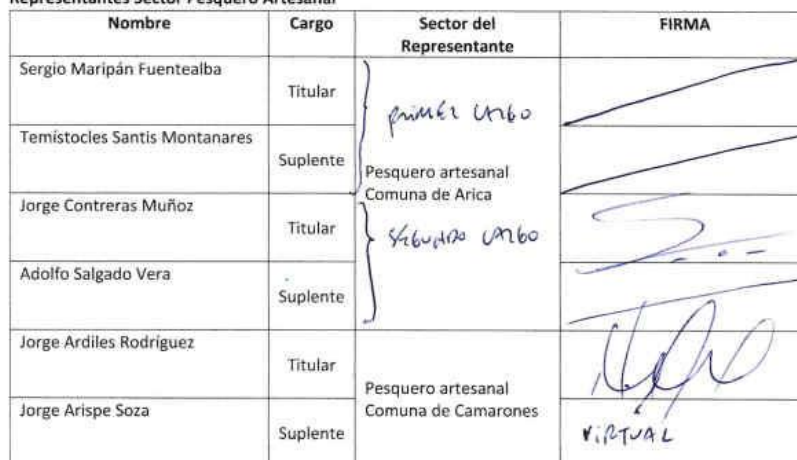 Representantes Sector Pesquero Artesanal
Nombre Cargo Sector del Representante FIRMA
Sergio Maripán Fuentealba Titular
PRIMER CARGO
Temístocles Santis Montanares Suplente
Pesquero artesanal
Comuna de Arica
Jorge Contreras Muñoz Titular
SEGUNDO CARGO
Adolfo Salgado Vera Suplente
Jorge Ardiles Rodríguez Titular
Pesquero artesanal
Comuna de Camarones
Jorge Arispe Soza Suplente
VIRTUAL